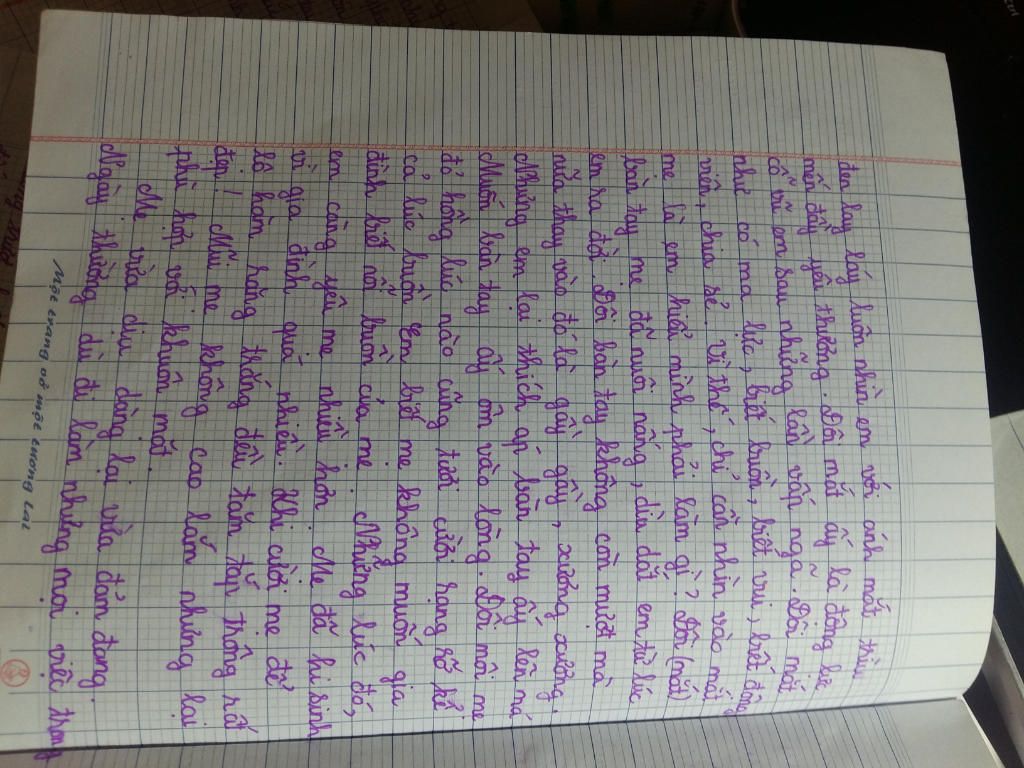 đen lay láy luôn nhìn em với ánh mắt trìu
mến đầy yêu thương. Đôi mắt ấy là động lực
cổ vũ em sau những lần vấp ngã. Đôi mắt
như có ma lực, biết buồn, biết vui, biết động
viên, chia sẻ. Vì thế, chỉ cần nhìn vào mắt
mẹ là em hiểu mình phải làm gì? Đôi (mắt)
bàn tay mẹ đã nuôi nấng, dìu dắt em từ lúc
em ra đời. Đôi bàn tay không còn mượt mà
nữa thay vào đó là gầy gầy, xương xương.
Nhưng em lại thích áp bàn tay ấy lên má
Muốn bàn tay ấy ôm vào lòng. Đôi môi mẹ
đỏ hồng lúc nào cũng tươi cười rạng rỡ kể
cả lúc buồn. Em biết mẹ không muốn gia
đình biết nỗi buồn của mẹ. Những lúc đó,
em càng yêu mẹ nhiều hơn. Mẹ đã hi sinh
vì gia đình quá nhiều. Khi cười mẹ để
lộ hàm răng thẳng đều tăm tắp trông rất
đẹp! Mũi mẹ không cao lắm nhưng lại
phù hợp với khuôn mặt.
Mẹ vừa dịu dàng lại vừa đảm đang.
Ngày thường dù đi làm nhưng mọi việc trong
Một trang vở một tương lai